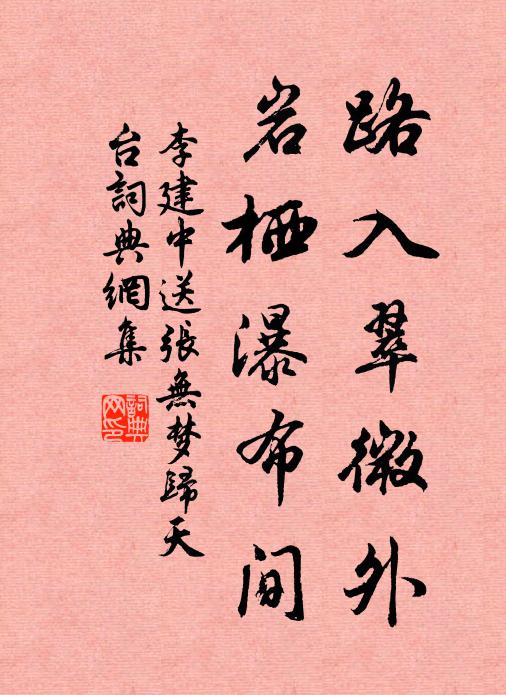 路入翠微外
岩栖瀑布间
李建中送張無梦歸天
台詞典網集
詞典
网印